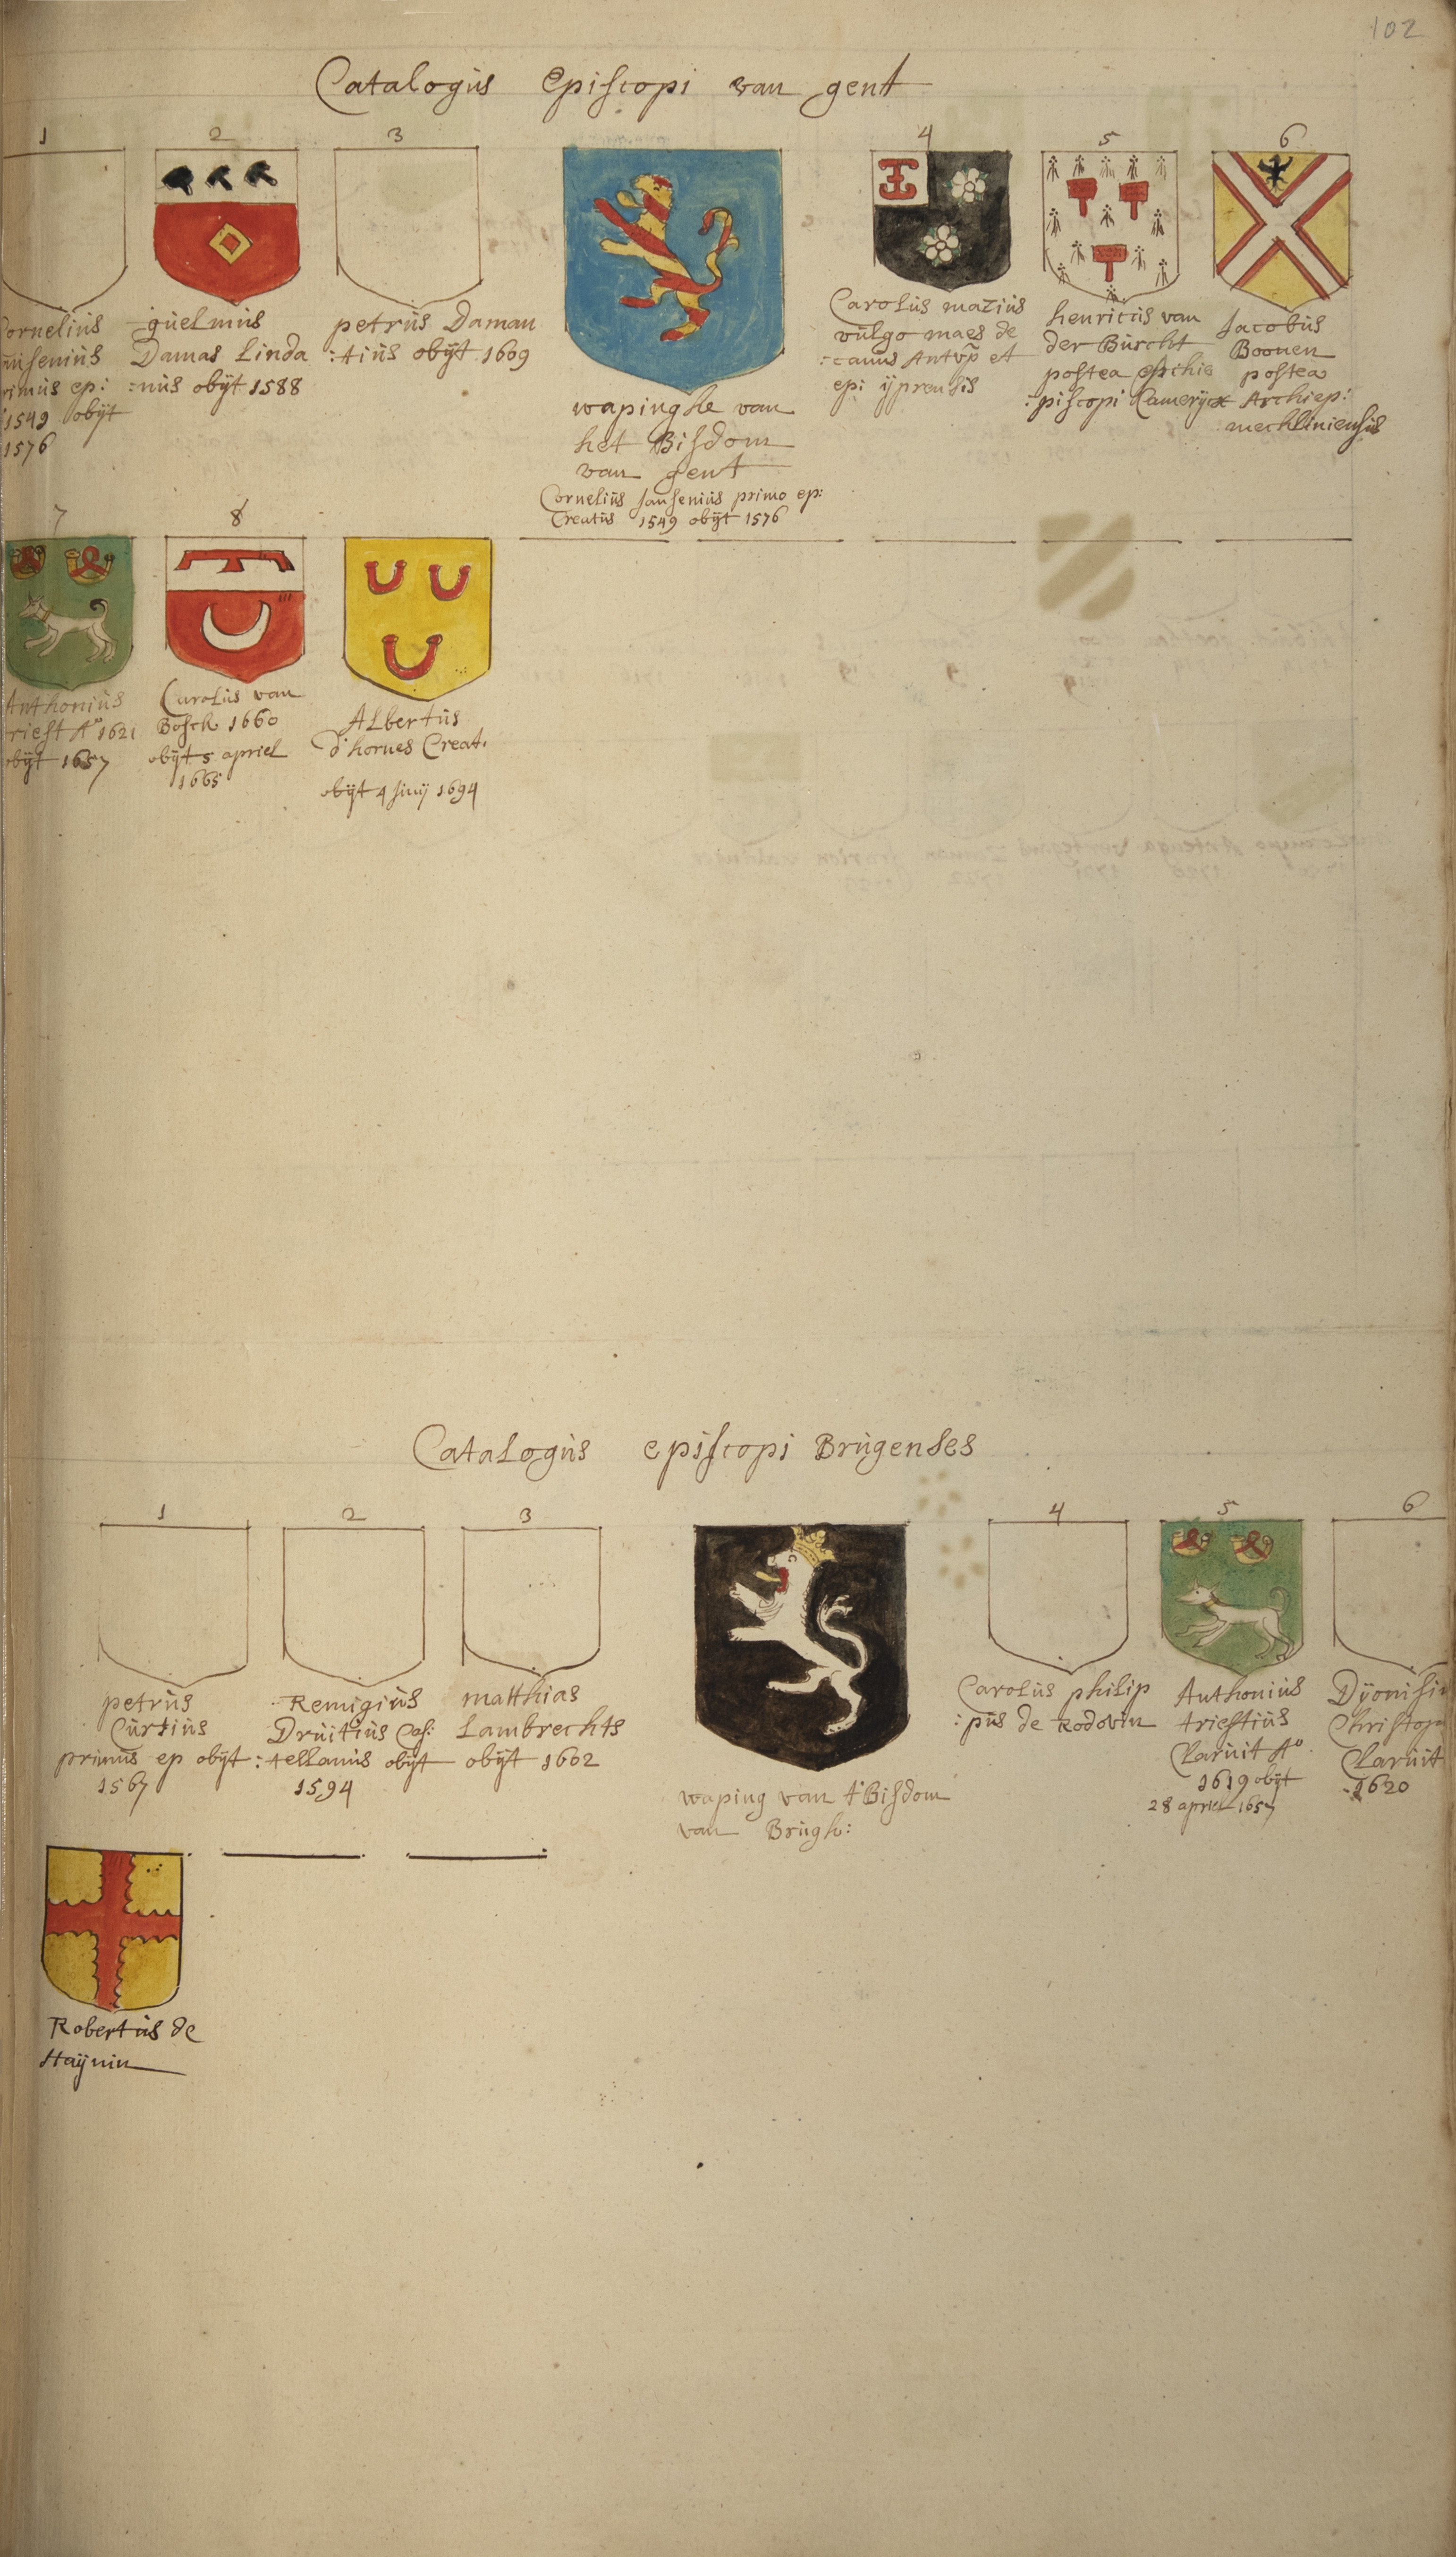 102
Catalogus Episcopi van gent
1
ornelius
nisenius
rimus ep:
1549 obijt
1576
2
guelmus
Damas Linda
:nus obijt 1588
3
petrus Daman
:tius obijt 1609
wapinghe van
het Bisdom
van gent
Cornelius Jansenius primo ep:
Creatus 1549 obijt 1576
4
Carolus mazius
vulgo maes de
:canus Antvp et
epi: yprensis
5
henricus van
der Burcht
postea
:piscopi Cameryck
6
Jacobus
Boonen
postea
Archiep:
mechliniensis
7
Anthonius
riest Aº 1621
obijt 1657
8
Carolus van
Bosch 1660
obijt 5 apriel
1665
Albertus
d'hornes Creat.
obijt 4 Junij 1694
Catalogus episcopi Brugenses
1
petrus
Curtius
primus ep obijt
1567
2
Remigius
Druitius Cas:
:tellanus obijt
1594
3
matthias
Lambrechts
obijt 1602
waping van t'Bisdom
van Brugh:
4
Carolus philip
:pus de Rodovin
5
Anthonius
triestius
Claruit Aº
1619 obijt
28 apriel 1657
6
Dyonisiu
Christop
Claruit
1620
Robertus de
Haynin